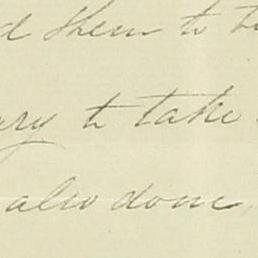 d them to
ary to take
also done